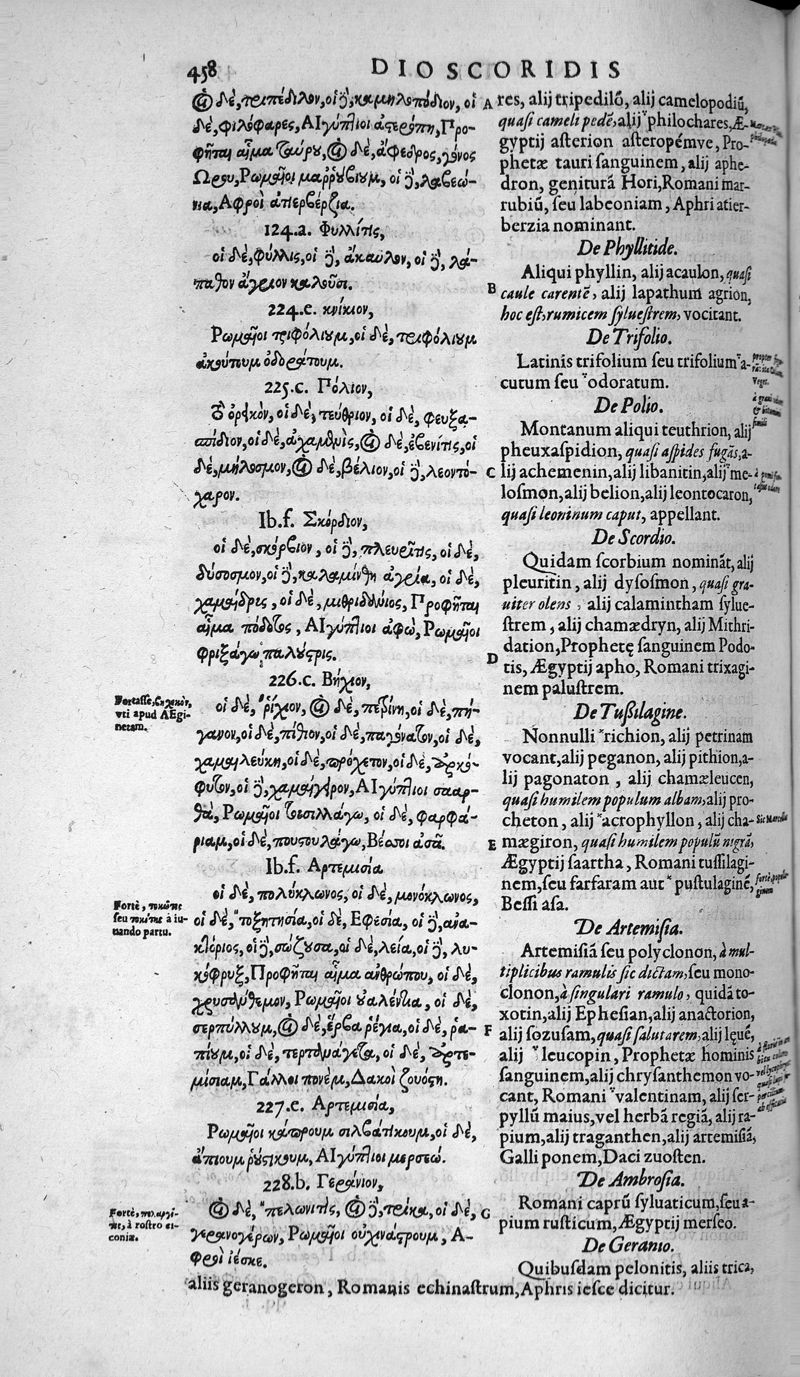 458
DIOSCORIDIS
οἱ δὲ, τριπέδιλον, οἱ ὃ, καμηλοπόδιον, οἱ
δὲ, φιλόφαρες, Αἰγύπτιοι ἀστερόπη, Προ-
φῆται αἷμα ταύρου, οἱ δὲ, ἄφεδρος, γόνος
Ὥρου, Ῥωμαῖοι μαρρούβιουμ, οἱ ὃ, λαβεώ-
νια, Ἄφροι ἀτιερβέρζια.
124.a. Φυλλῖτις,
οἱ δὲ, φύλλις, οἱ ὃ, ἄκαυλον, οἱ ὃ, λά-
παθον ἄγριον καλοῦσι.
224.e.
Ῥωμαῖοι τριφόλιουμ, οἱ δὲ, τριφόλιουμ
ἀκούτουμ ὀδοράτουμ.
225.c. Πόλιον,
Τὸ ὀρεικὸν, οἱ δὲ, τεύθριον, οἱ δὲ, φευξα-
σπίδιον, οἱ δὲ, οἱ δὲ, οἱ
δὲ, οἱ δὲ, βέλιον, οἱ ὃ, λεοντό-
χαρον.
Ib.f. Σκόρδιον,
οἱ δὲ, σκόρβιον, οἱ ὃ, πλευρῖτις, οἱ δὲ,
δύσοσμον, οἱ ὃ, καλαμίνθη ἀγρία, οἱ δὲ,
χαμαίδρυς, οἱ δὲ, μιθριδάνιος, Προφῆται
αἷμα ποδότος, Αἰγύπτιοι ἀφὼ, Ῥωμαῖοι
τριξάγω παλούστρις.
226.c. Βήχιον,
οἱ δὲ, ῥίχιον, οἱ δὲ, πετρίνη, οἱ δὲ, πή-
γανον, οἱ δὲ, πίθιον, οἱ δὲ, παγόνατον, οἱ δὲ,
χαμαιλεύκη, οἱ δὲ, πρόχετον, οἱ δὲ, ἀρκό-
φυτον, οἱ ὃ, χαμαίγειρον, Αἰγύπτιοι σααρ-
θὰ, Ῥωμαῖοι τουσσιλάγω, οἱ δὲ, φαρφά-
ριαμ, οἱ δὲ, πουστουλάγω, Βέσσοι ἀσᾶ.
Ib.f. Ἀρτεμισία
οἱ δὲ, πολύκλωνος, οἱ δὲ, μονόκλωνος,
οἱ δὲ, τοξητησία, οἱ δὲ, Ἐφεσία, οἱ ὃ, ἀνα-
κτόριος, οἱ ὃ, σώζουσα, οἱ δὲ, λεία, οἱ ὃ, λυ-
κόφρυξ, Προφῆται αἷμα ἀνθρώπου, οἱ δὲ,
χρυσάνθεμον, Ῥωμαῖοι οὐαλέντια, οἱ δὲ,
σερπύλλουμ, οἱ δὲ, ἕρβα ῥέγια, οἱ δὲ, ῥα-
πίουμ, οἱ δὲ, τερτανάγετα, οἱ δὲ, ἀρτε-
μίσιαμ, Γάλλοι πονέμ, Δακοὶ ζουόστη.
227.e. Ἀρτεμισία,
Ῥωμαῖοι κάπρουμ σιλβάτικουμ, οἱ δὲ,
ἄπιουμ ῥούστικουμ, Αἰγύπτιοι μερσεώ.
228.b. Γεράνιον,
οἱ δὲ, πελωνῖτις, οἱ ὃ, τρίκα, οἱ δὲ,
γερανογέρων, Ῥωμαῖοι ἐχινάστρουμ, Ἄ-
φροι ἰέσκε.
Fortasse,
vti apud AEgi-
netam.
Fortè,
seu à iu-
uando partu.
Fortè,
à rostro ci-
coniæ.
A
B
C
D
E
F
G
res, alij tripedilõ, alij camelopodiũ,
quasi cameli pedẽ, alij philochares, Æ-
gyptij asterion asteropémve, Pro-
phetæ tauri sanguinem, alij aphe-
dron, geniturã Hori, Romani mar-
rubiũ, seu labeoniam, Aphri atier-
berzia nominant.
De Phyllitide.
Aliqui phyllin, alij acaulon, quasi
caule carentẽ, alij lapathum agrion,
hoc est, rumicem syluestrem, vocitant.
De Trifolio.
Latinis trifolium seu trifolium a-
cutum seu odoratum.
De Polio.
Montanum aliqui teuthrion, alij
pheuxaspidion, quasi aspides fugãs, a-
lij achemenin, alij libanitin, alij me-
losmon, alij belion, alij leontocaron,
quasi leoninum caput, appellant.
De Scordio.
Quidam scorbium nominãt, alij
pleuritin, alij dysosmon, quasi gra-
uiter olens, alij calamintham sylue-
strem, alij chamædryn, alij Mithri-
dation, Prophetę sanguinem Podo-
tis, Ægyptij apho, Romani trixagi-
nem palustrem.
De Tußilagine.
Nonnulli richion, alij petrinam
vocant, alij peganon, alij pithion, a-
lij pagonaton, alij chamæleucen,
quasi humilem populum albam, alij pro-
cheton, alij acrophyllon, alij cha-
mægiron, quasi humilem populũ nigrã,
Ægyptij saartha, Romani tussilagi-
nem, seu farfaram aut pustulaginẽ,
Bessi asa.
De Artemisia.
Artemisiã seu polyclonon, à mul-
tiplicibus ramulis sic dictam, seu mono-
clonon, à singulari ramulo, quidã to-
xotin, alij Ephesian, alij anactorion,
alij sozusam, quasi salutarem, alij lęuẽ,
alij leucopin, Prophetæ hominis
sanguinem, alij chrysanthemon vo-
cant, Romani valentinam, alij ser-
pyllũ maius, vel herbã regiã, alij ra-
pium, alij traganthen, alij artemisiã,
Galli ponem, Daci zuosten.
De Ambrosia.
Romani caprũ syluaticum, seu a-
pium rusticum, Ægyptij merseo.
De Geranio.
Quibusdam pelonitis, aliis trica,
aliis geranogeron, Romanis echinastrum, Aphris iesce dicitur.